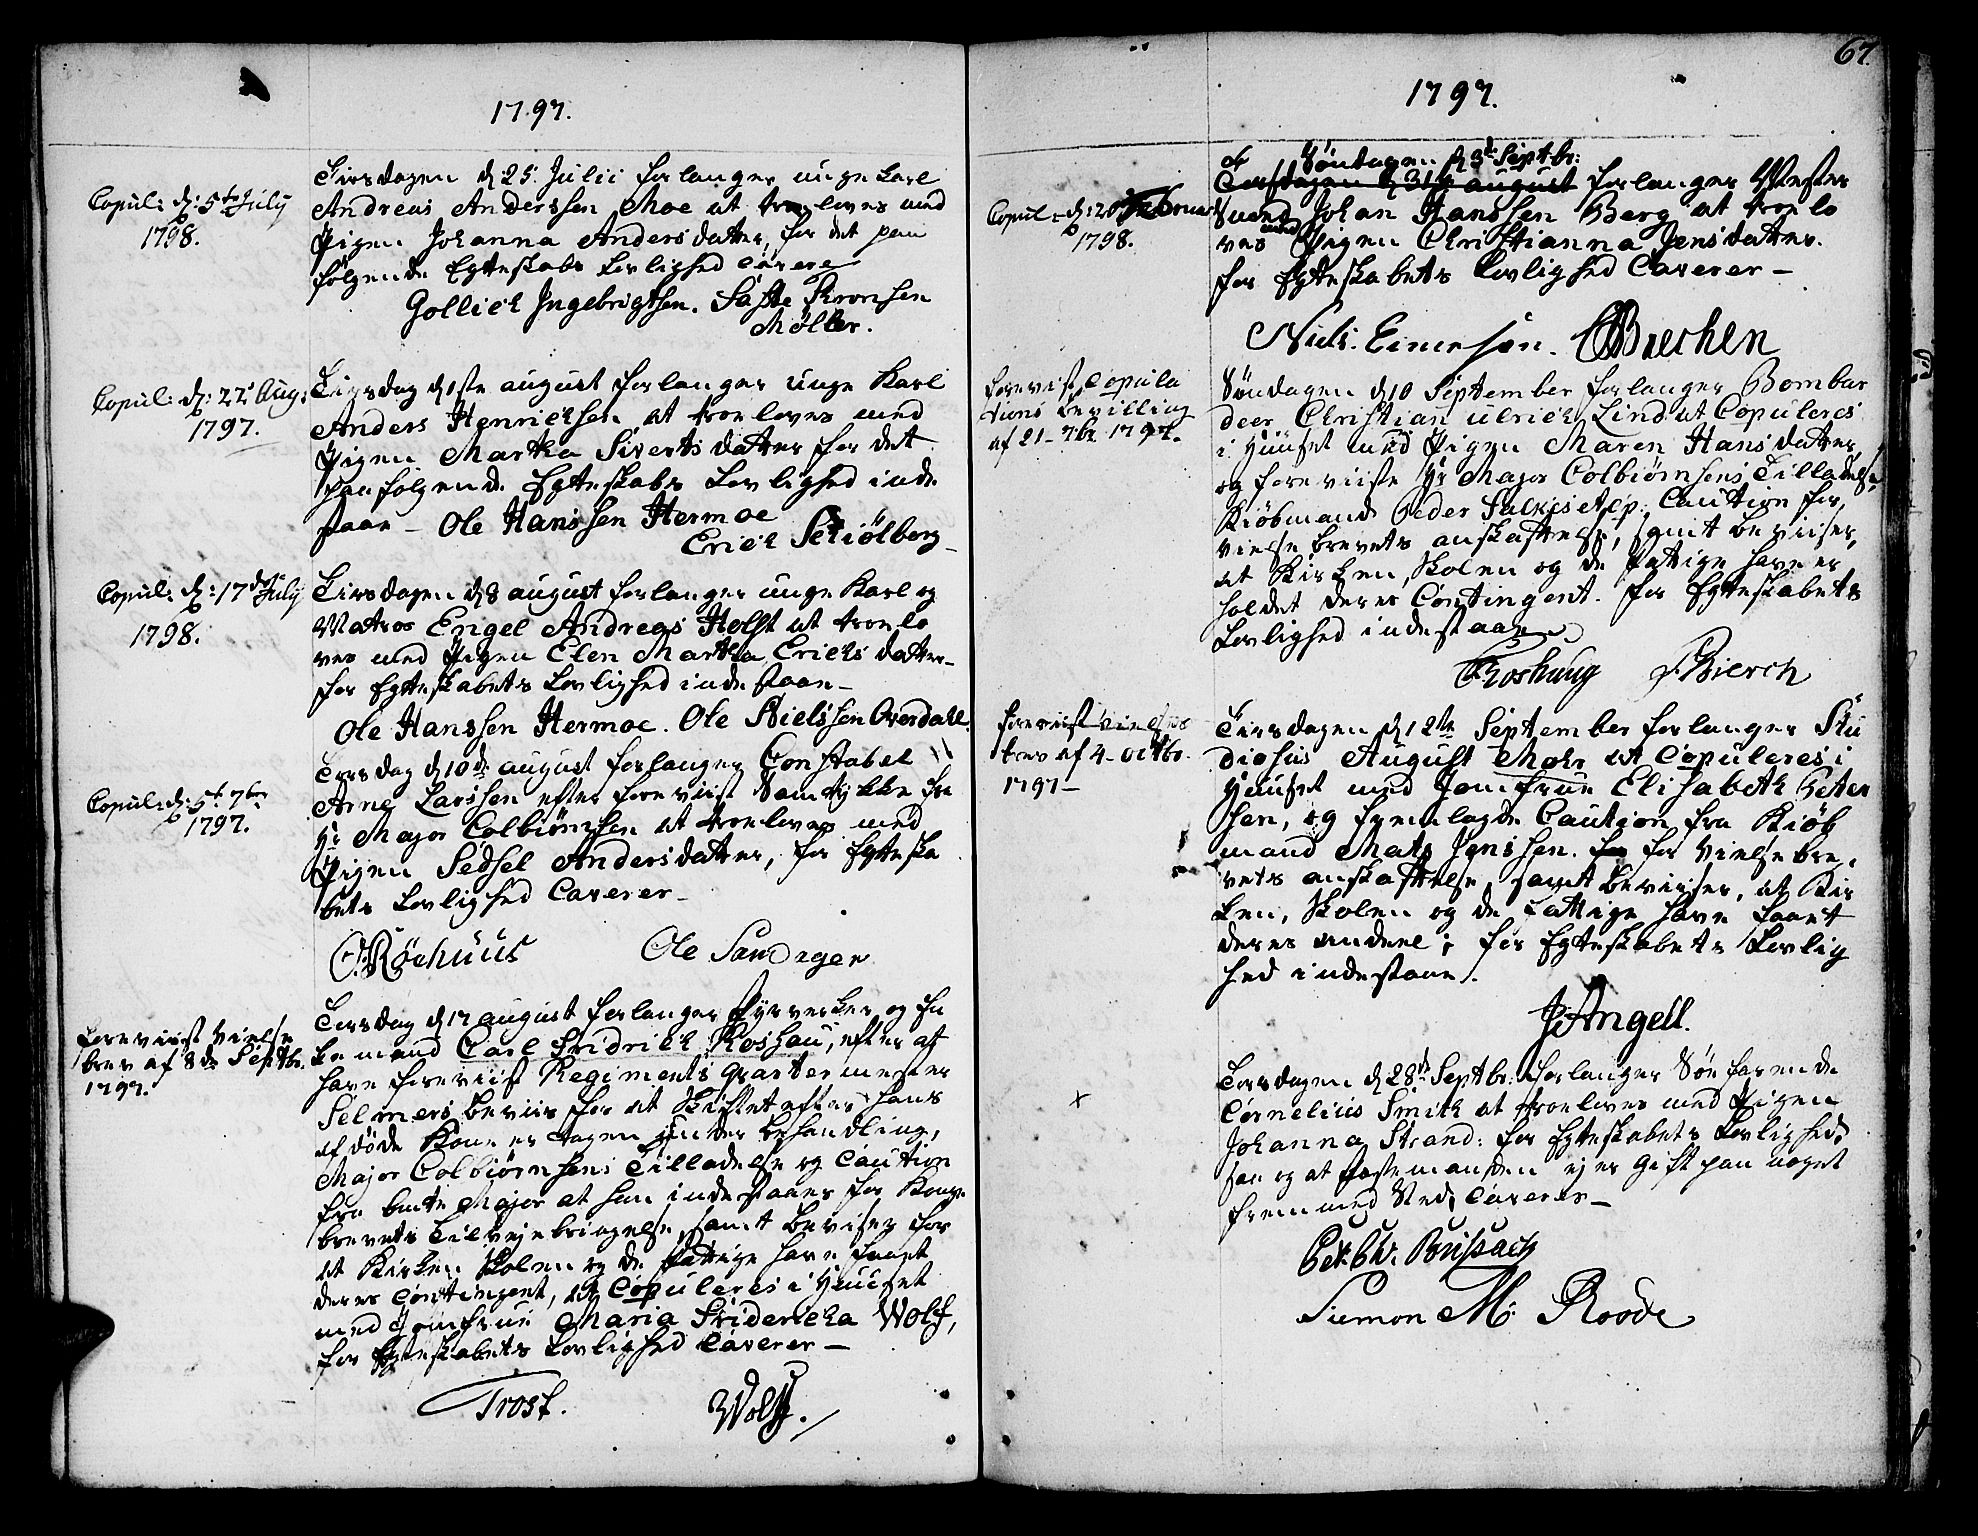 1797.
Copul: d: 5te July
1798.
Tirsdagen d 25. Julii forlanger unge Karl
Andreas Anderssen Moe at troeloves med
Pigen Johanna Andersdatter, for det paa
følgende Egteskabs Lovlighed Cavere
Gollich Ingebrigtsen. Saste
Møller.
Copul: d: 22 Aug:
1797.
Tirsdag d 1ste august forlanger unge Karl
Anders Henrichsen at troeloves med
Pigen Martha Siverts datter for det
paafølgende Egteskabs Lovlighed inde
staae – Ole Hanssen Hermoe
Erich Schiölberg
Copul: d: 17de July
1798.
Tirsdagen d 8 august forlanger unge Karl og
Matros Engel Andreas Holst at troelo
ves med Pigen Elen Martha Erichs datter –
for Egteskabets Lovlighed indestaae –
Ole Hanssen Hermoe. Ole Nielssen Overdahl.
Copul: d: 5t 7br
1797.
Torsdag d 10de august forlanger Constabel
Arne Larssen efter foreviist Samtykke fra
Hr Major Colbiørnsen at troeloves med
Pigen Sedsel Andersdatter, for Egteska
bets Lovlighed Caverer –
Ole Sandagen
Foreviist Vielse
brev af 8de Septbr.
1797.
Torsdag d 17 august forlanger Fyrverker og En
kemand Carl Fridrich Roshau, efter at
have foreviist Regiments Qvartermester
Selmers beviis for at Skiftet efter hans
afdöde Kone er tagen under behandling,
Major Colbiørnsens Tilladelse og Caution
fra bemte Major at han indestaaer for Konge
brevets Tilvejebringelse, samt beviser for
at Kirken Skolen og de Fattige have faaet
deres Contingent, at Copuleres i Huuset
med Jomfrue Maria Fridericha Wolf,
for Egteskabets Lovlighed Caverer –
Trost. Wolff.
67.
1797.
Copul: d: 20 Februar
1798.
Söndagen d 3de Septbr:
Torsdagen d 31te august forlanger Mester
Svend Johan Hanssen Berg at troelo
ves med Pigen Christianna Jensdatter.
for Egteskabets Lovlighed Caverer –
Niels. Einersen.
Foreviist Copula
tions bevilling
af 21 – 7br 1797.
Söndagen d 10 September forlanger Bombar
deer Christian Ulrich Lind at Copuleres
i Huuset med Pigen Maren Hansdatter,
og foreviiste Hr Major Colbiørnsens Tilladelse,
Kiöbmand Peder Caution for
vielsebrevets anskaffelse, samt beviiser,
at Kirken, Skolen og de Fattige have er
holdet deres Contingent. for Egteskabets
Lovlighed indestaae
Roshuug Bierch
Foreviist vielses
brev af 4 – Octbr.
1797 –
Tirsdagen d 12te September forlanger Stu
diosus August Mohr at Copuleres i
Huuset med Jomfrue Elisabeth Peter
sen, og fremlagde Caution fra Kiöb
mand Mats Jenssen. for Vielsebre,
vets anskaffelse samt beviiser, at Kir
ken, Skolen og de Fattige have faaet
deres andeel; for Egteskabets Lovlig
hed indestaae.
JAngell.
x
Torsdagen d 28de Septbr: forlanger Söefarende
Cornelius Smith at troeloves med Pigen
Johanna Strand: for Egteskabets Lovlighed,
saa og at Festemanden ej er Gift paa noget
fremmed Sted, Caverer –
Siemon M: Roode